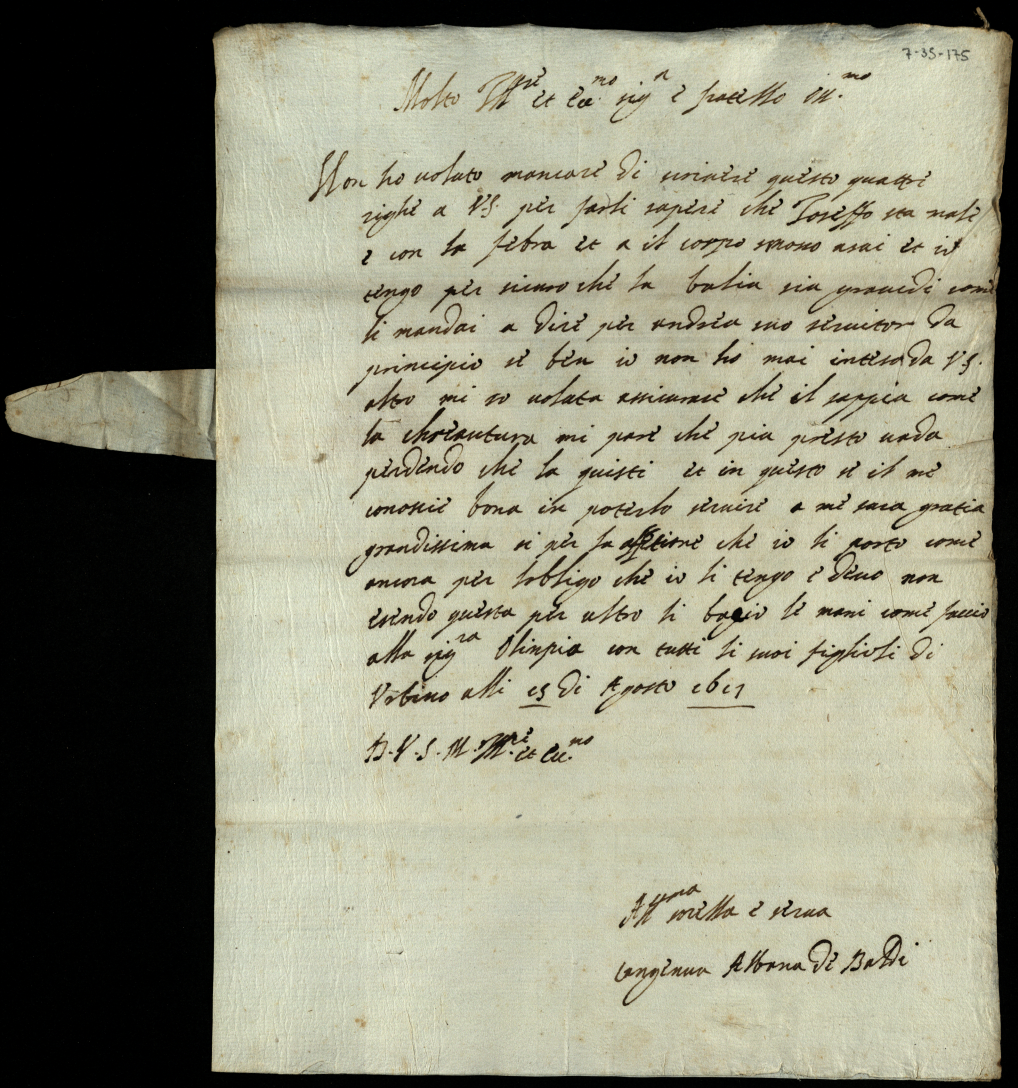 7-35-175
Molto Ill.re et Ecc.mo sig.r e fratello oss.mo
Non ho voluto mancare di scrivere questo quattre
righe a V.S. per farli sapere che Ioseffo sta male
e con la febra et a il corpo smoso asai et io
tengo per sicuro che la balia sia graveda come
li mandai a dire per andrea suo servitor da
principio se ben io non ho mai inteso da V.S.
altro mi so voluta assicurare che il sappia come
la chreautura mi pare che pia presto vada
perdendo che la quisti et in questo se il me
conoscie bona in poterlo servire a me sara gratia
grandissima si per la affetione che io li porto come
ancora per lobligo che io li tengo e devo non
esendo questa per altro li bagio le mani come faccio
alla sig.ra Olinpia con tutti li suoi figlioli di
Urbino alli 15 di Agosto
D. V. S. M. Ill.re et Ecc.mo
Aff.ma sorella e serva
Albana de Baldi